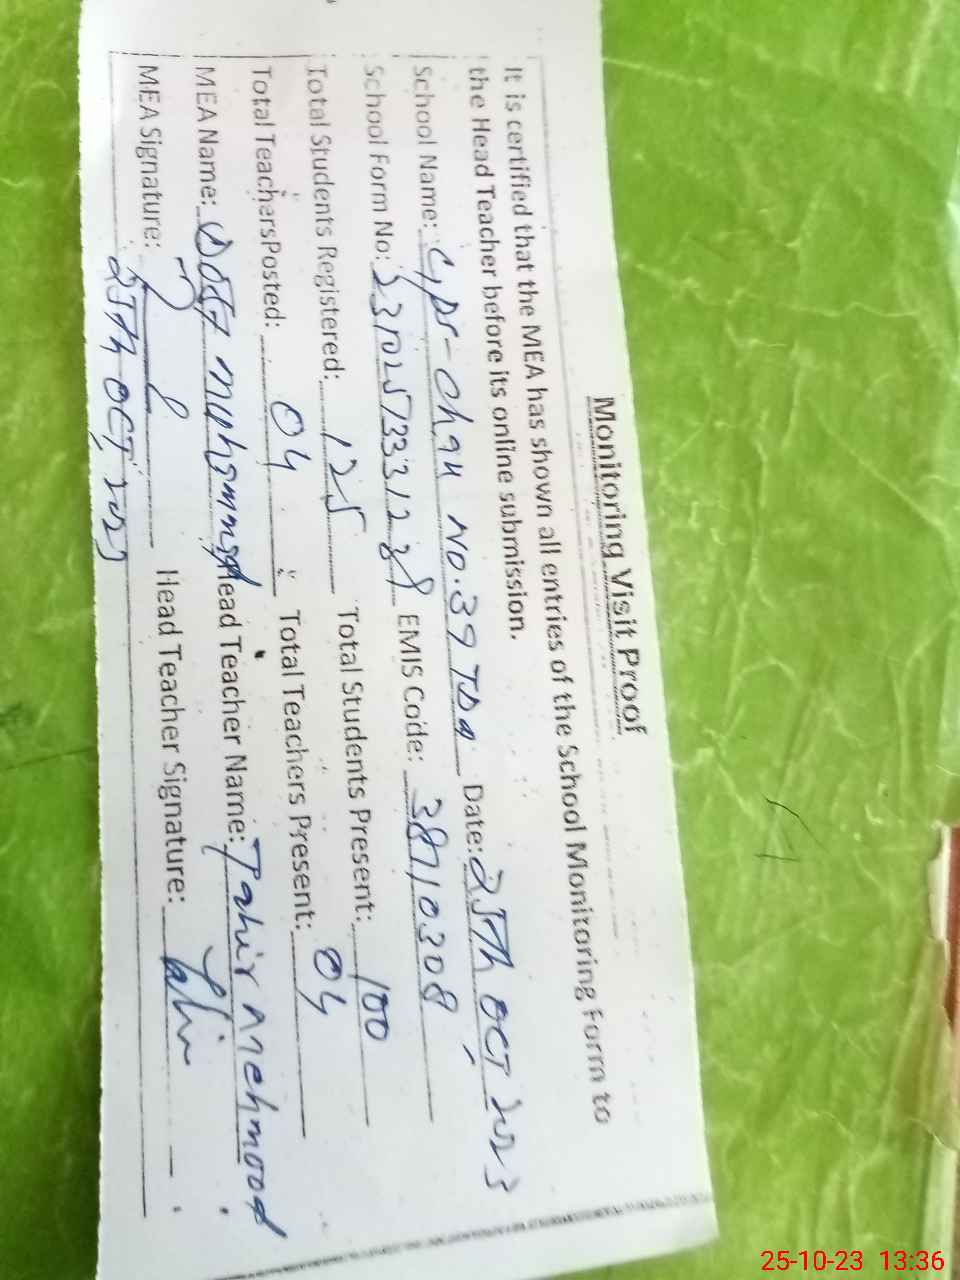 Monitoring Visit Proof
It is certified that the MEA has shown all entries of the School Monitoring Form to
the Head Teacher before its online submission.
School Name: Chak No. 39 TDA Date: 25th OCT, 2023
School Form No: EMIS Code: 38710308
Total Students Registered: 125 Total Students Present: 100
Total TeachersPosted: 04 Total Teachers Present: 04
MEA Name: Dost Muhammad Head Teacher Name: Tahir Mehmood
MEA Signature: Head Teacher Signature: Tahir
25th OCT, 2023
25-10-23 13:36